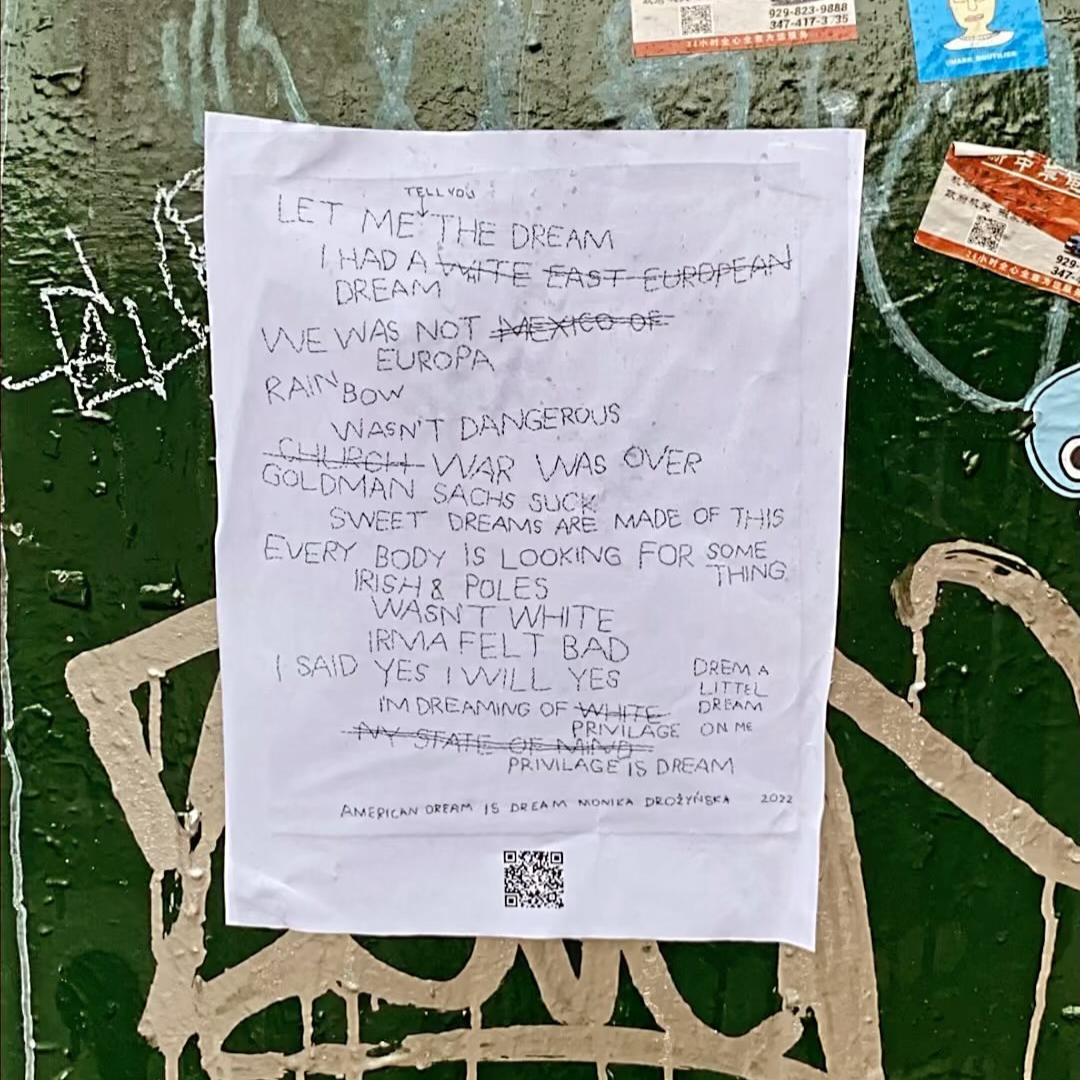 929-823-9888
347-417-3735
24小时全心全意为您服务
TELL YOU
LET ME THE DREAM
I HAD A WITE EAST EUROPEAN
DREAM
WE WAS NOT MEXICO OF
EUROPA
RAINBOW
WASN'T DANGEROUS
CHURCH WAR WAS OVER
GOLDMAN SACHS SUCK
SWEET DREAMS ARE MADE OF THIS
EVERY BODY IS LOOKING FOR SOME
THING
IRISH & POLES
WASN'T WHITE
IRMA FELT BAD
I SAID YES I WILL YES
DREM A
LITTEL
DREAM
ON ME
I'M DREAMING OF WHITE
PRIVILAGE
NY STATE OF MIND
PRIVILAGE IS DREAM
AMERICAN DREAM IS DREAM MONIKA DROŻYŃSKA 2022
929-
347-